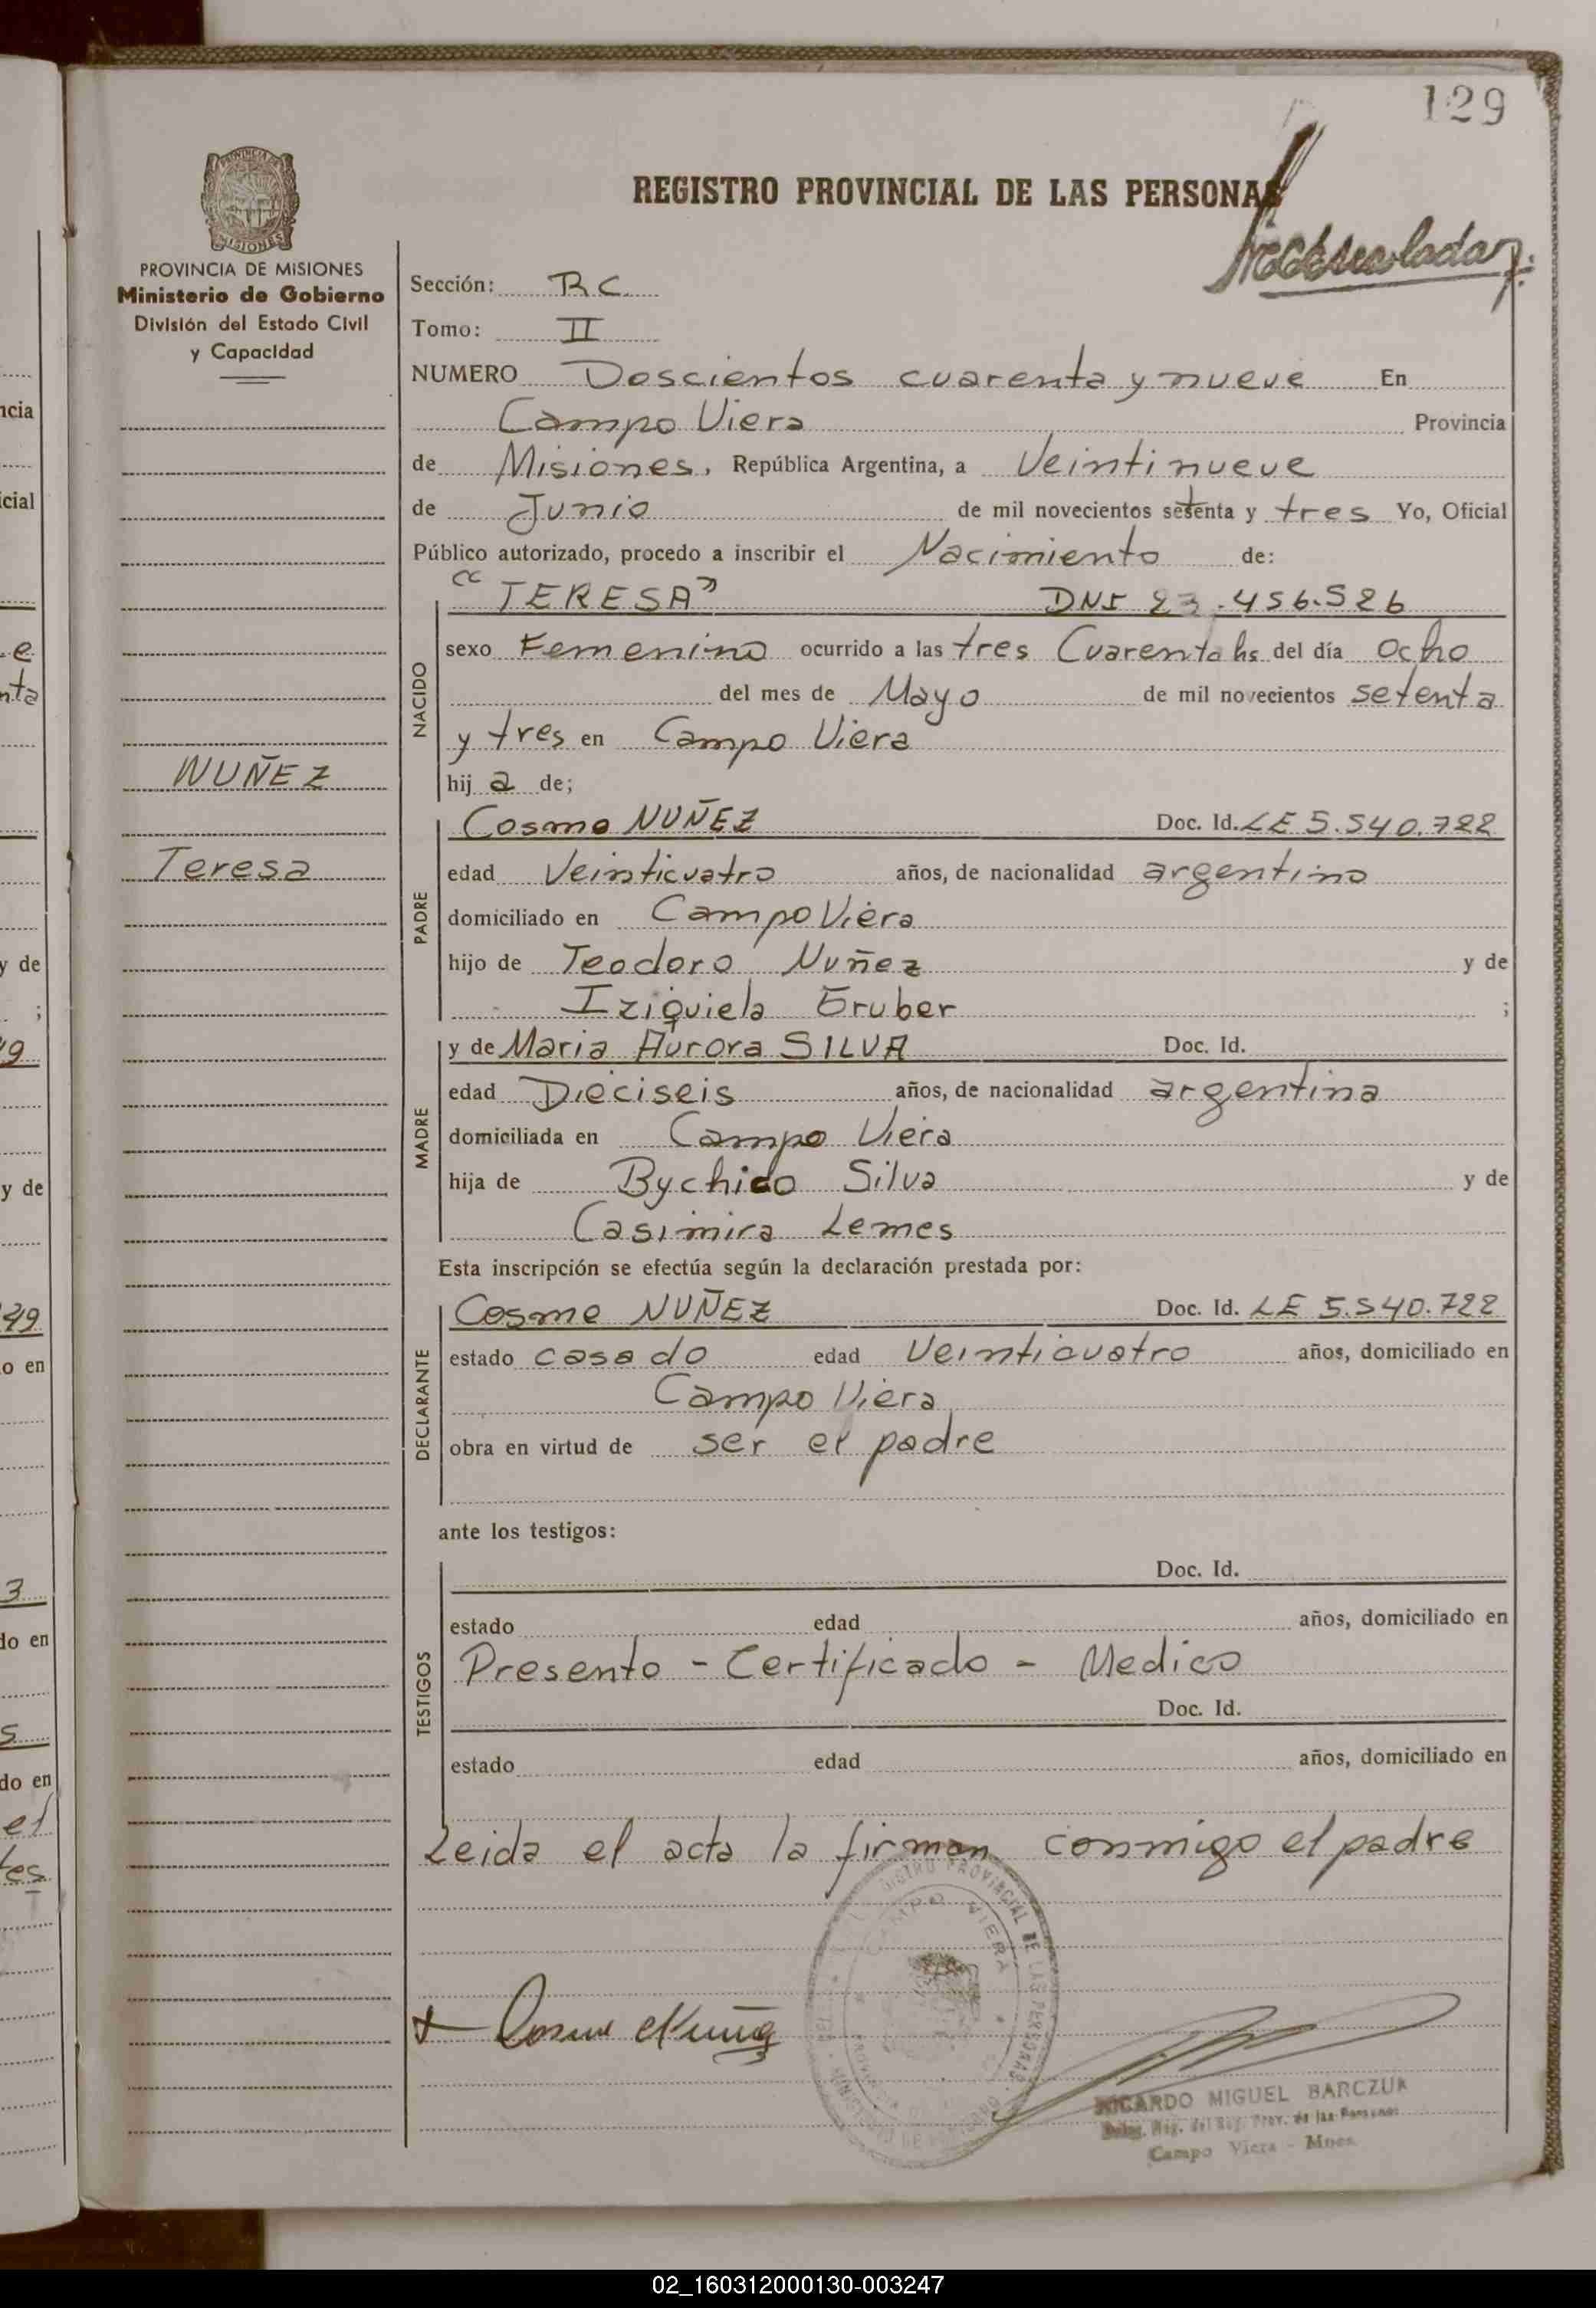 129
REGISTRO PROVINCIAL DE LAS PERSONAS
PROVINCIA DE MISIONES
Ministerio de Gobierno
División del Estado Civil
y Capacidad
Sección: RC
Tomo: II
NUMERO Doscientos cuarenta y nueve En
Campo Viera Provincia
de Misiones, República Argentina, a Veintinueve
de Junio de mil novecientos setenta y tres Yo, Oficial
Público autorizado, procedo a inscribir el Nacimiento de:
"TERESA" DNI 23.456.526
NACIDO
sexo Femenino ocurrido a las tres Cuarenta hs del día ocho
del mes de Mayo de mil novecientos setenta
y tres en Campo Viera
hij a de;
NUÑEZ
Teresa
PADRE
Cosme NUÑEZ Doc. Id. LE 5.540.722
edad Veinticuatro años, de nacionalidad argentino
domiciliado en Campo Viera
hijo de Teodoro Nuñez y de
Iziquiela Gruber ;
MADRE
y de Maria Aurora SILVA Doc. Id.
edad Dieciseis años, de nacionalidad argentina
domiciliada en Campo Viera
hija de Bychido Silva y de
Casimira Lemes
Esta inscripción se efectúa según la declaración prestada por:
DECLARANTE
Cosme NUÑEZ Doc. Id. LE 5.540.722
estado casado edad Veinticuatro años, domiciliado en
Campo Viera
obra en virtud de ser el padre
ante los testigos:
TESTIGOS
Doc. Id.
estado edad años, domiciliado en
Presento - Certificado - Medico
Doc. Id.
estado edad años, domiciliado en
Leida el acta la firman conmigo el padre
Cosme Nuñez
RICARDO MIGUEL BARCZUK
Deleg. Reg. del Reg. Prov. de las Personas
Campo Viera - Mnes.
02_160312000130-003247